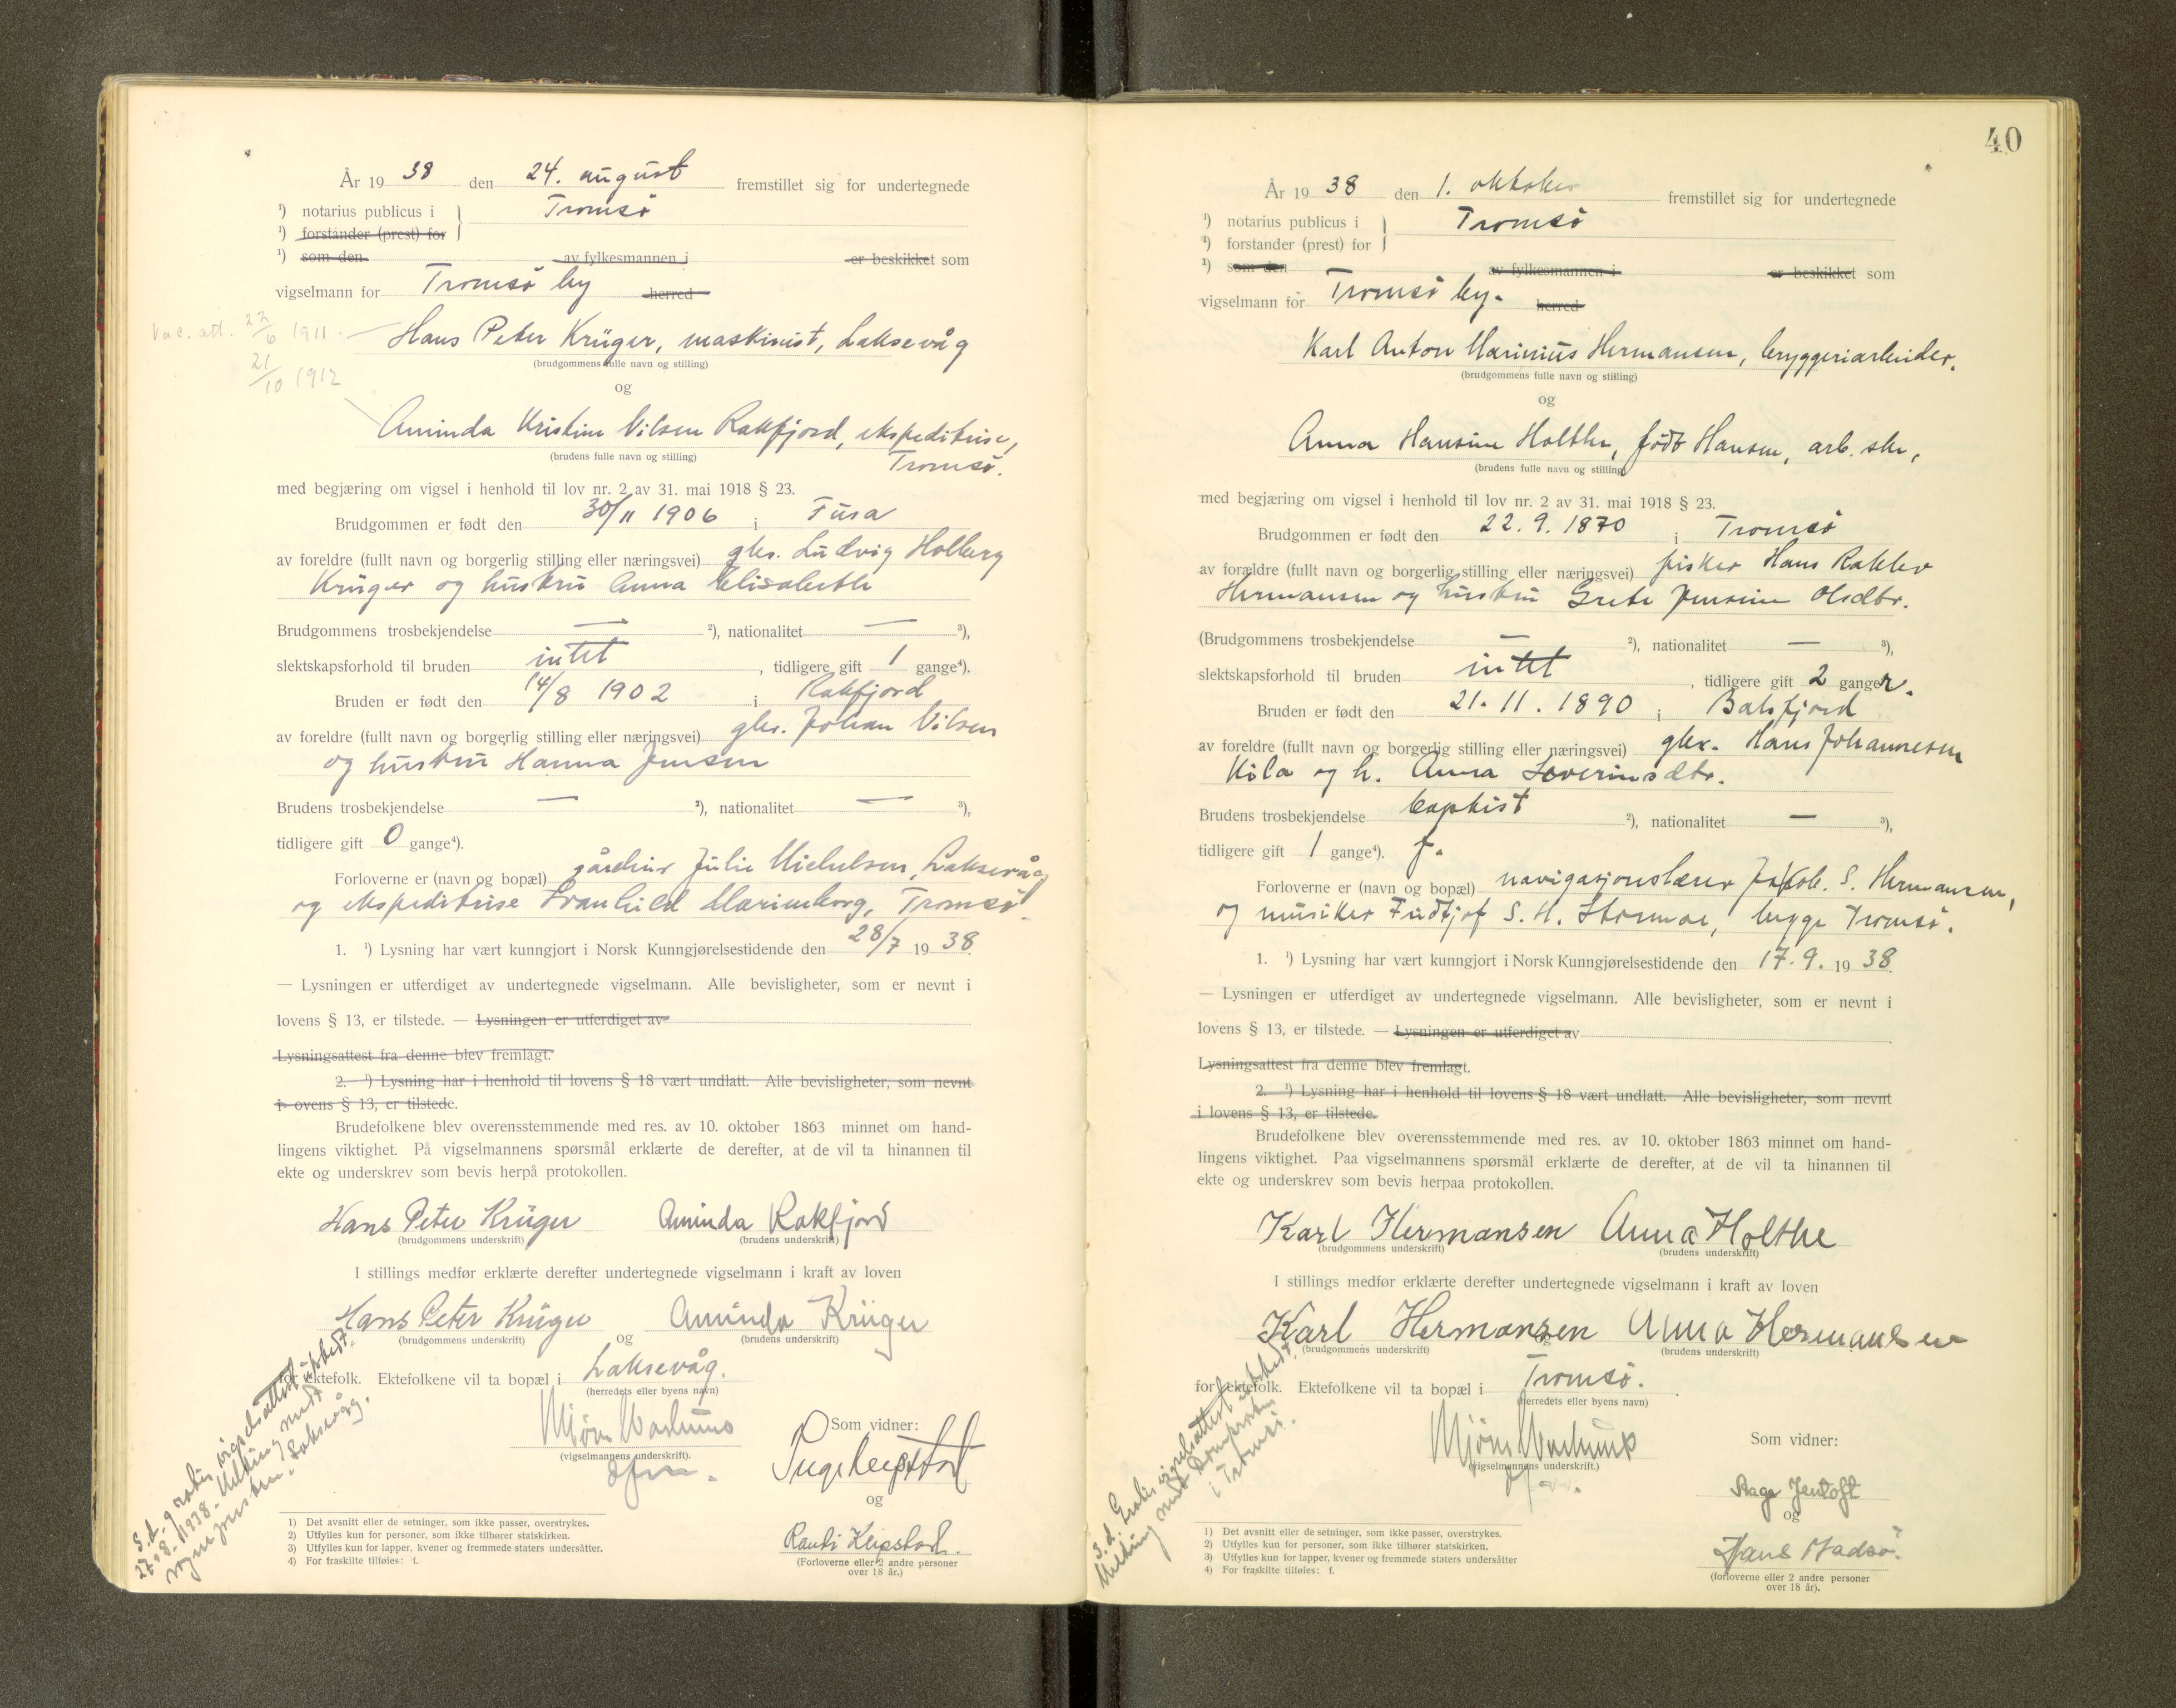 År 19 38 den 24. august fremstillet sig for undertegnede
¹) notarius publicus i } Tromsø
¹) forstander (prest) for
¹) som den av fylkesmannen i er beskikket som
vigselmann for Tromsø by herred
Vac. att. 22/6 1911
Hans Peter Krüger, maskinist, Laksevåg
(brudgommens fulle navn og stilling)
21/10 1912
og
Aminda Kristine Nilsen Rakfjord, ekspeditrise,
(brudens fulle navn og stilling)
Tromsø.
med begjæring om vigsel i henhold til lov nr. 2 av 31. mai 1918 § 23.
Brudgommen er født den 30/11 1906 i Fusa
av foreldre (fullt navn og borgerlig stilling eller næringsvei) gbr. Ludvig Holberg
Krüger og hustru Anna Elisabeth
Brudgommens trosbekjendelse — ²), nationalitet — ³),
slektskapsforhold til bruden intet, tidligere gift 1 gange⁴).
Bruden er født den 14/8 1902 i Rakfjord
av foreldre (fullt navn og borgerlig stilling eller næringsvei) gbr. Johan Nilsen
og hustru Hanna Jensen
Brudens trosbekjendelse — ²), nationalitet — ³),
tidligere gift 0 gange⁴).
Forloverne er (navn og bopæl) Julie Michelsen, Laksevåg
og ekspeditrise Svanhild Marienborg, Tromsø.
1. ¹) Lysning har vært kunngjort i Norsk Kunngjørelsestidende den 28/7 19 38.
— Lysningen er utferdiget av undertegnede vigselmann. Alle bevisligheter, som er nevnt i
lovens § 13, er tilstede. — Lysningen er utferdiget av
Lysningsattest fra denne blev fremlagt.
2. ¹) Lysning har i henhold til lovens § 18 vært undlatt. Alle bevisligheter, som nevnt
i ovens § 13, er tilstede.
Brudefolkene blev overensstemmende med res. av 10. oktober 1863 minnet om hand-
lingens viktighet. På vigselmannens spørsmål erklærte de derefter, at de vil ta hinannen til
ekte og underskrev som bevis herpå protokollen.
Hans Peter Krüger Aminda Rakfjord
(brudgommens underskrift) (brudens underskrift)
I stillings medfør erklærte derefter undertegnede vigselmann i kraft av loven
Hans Peter Krüger og Aminda Krüger
(brudgommens underskrift) (brudens underskrift)
for ektefolk. Ektefolkene vil ta bopæl i Laksevåg.
(herredets eller byens navn)
Som vidner:
(vigselmannens underskrift).
og
(Forloverne eller 2 andre personer
over 18 år.)
S.d. gratis vigselsattest utstedt.
27-8-1938. Melding sendt
sognepresten, Laksevåg.
1) Det avsnitt eller de setninger, som ikke passer, overstrykes.
2) Utfylles kun for personer, som ikke tilhører statskirken.
3) Utfylles kun for lapper, kvener og fremmede staters undersåtter.
4) For fraskilte tilføies: f.
40
År 19 38 den 1. oktober fremstillet sig for undertegnede
¹) notarius publicus i } Tromsø
¹) forstander (prest) for
¹) som den av fylkesmannen i er beskikket som
vigselmann for Tromsø by. herred
Karl Anton Marinius Hermansen, bryggeriarbeider.
(brudgommens fulle navn og stilling)
og
Anna Hansine Holthe, født Hansen, arb. ske,
(brudens fulle navn og stilling)
med begjæring om vigsel i henhold til lov nr. 2 av 31. mai 1918 § 23.
Brudgommen er født den 22. 9. 1870 i Tromsø
av forældre (fullt navn og borgerlig stilling eller næringsvei) fisker Hans
Hermansen og hustru Grete Jensine Olsdtr.
(Brudgommens trosbekjendelse — ²), nationalitet — ³),
slektskapsforhold til bruden intet, tidligere gift 2 ganger.
Bruden er født den 21. 11. 1890 i Balsfjord
av foreldre (fullt navn og borgerlig stilling eller næringsvei) gbr. Hans Johannesen
og h. Anna Severinsdtr.
Brudens trosbekjendelse baptist ²), nationalitet — ³),
tidligere gift 1 gange⁴). f.
Forloverne er (navn og bopæl) navigasjonslærer Jakob. S. Hermansen,
og musiker Fridtjof S. H. Stormoe, begge Tromsø.
1. ¹) Lysning har vært kunngjort i Norsk Kunngjørelsestidende den 17. 9. 19 38.
— Lysningen er utferdiget av undertegnede vigselmann. Alle bevisligheter, som er nevnt i
lovens § 13, er tilstede. — Lysningen er utferdiget av
Lysningsattest fra denne blev fremlagt.
2. ¹) Lysning har i henhold til lovens § 18 vært undlatt. Alle bevisligheter, som nevnt
i lovens § 13, er tilstede.
Brudefolkene blev overensstemmende med res. av 10. oktober 1863 minnet om hand-
lingens viktighet. Paa vigselmannens spørsmål erklærte de derefter, at de vil ta hinannen til
ekte og underskrev som bevis herpaa protokollen.
Karl Hermansen Anna Holthe
(brudgommens underskrift) (brudens underskrift)
I stillings medfør erklærte derefter undertegnede vigselmann i kraft av loven
Karl Hermansen Anna Hermansen
(brudgommens underskrift) (brudens underskrift)
for ektefolk. Ektefolkene vil ta bopæl i Tromsø.
(herredets eller byens navn)
Som vidner:
(vigselmannens underskrift.)
Aage Jentoft
og
Hans Madsø.
(forloverne eller 2 andre personer
over 18 år).
S.d. Gratis vigselsattest utstedt.
Melding sendt domprosten
i Tromsø.
1) Det avsnitt eller de setninger, som ikke passer, overstrykes.
2) Utfylles kun for personer, som ikke tilhører statskirken.
3) Utfylles kun for lapper, kvener og fremmede staters undersåtter
4) For fraskilte tilføies: f.